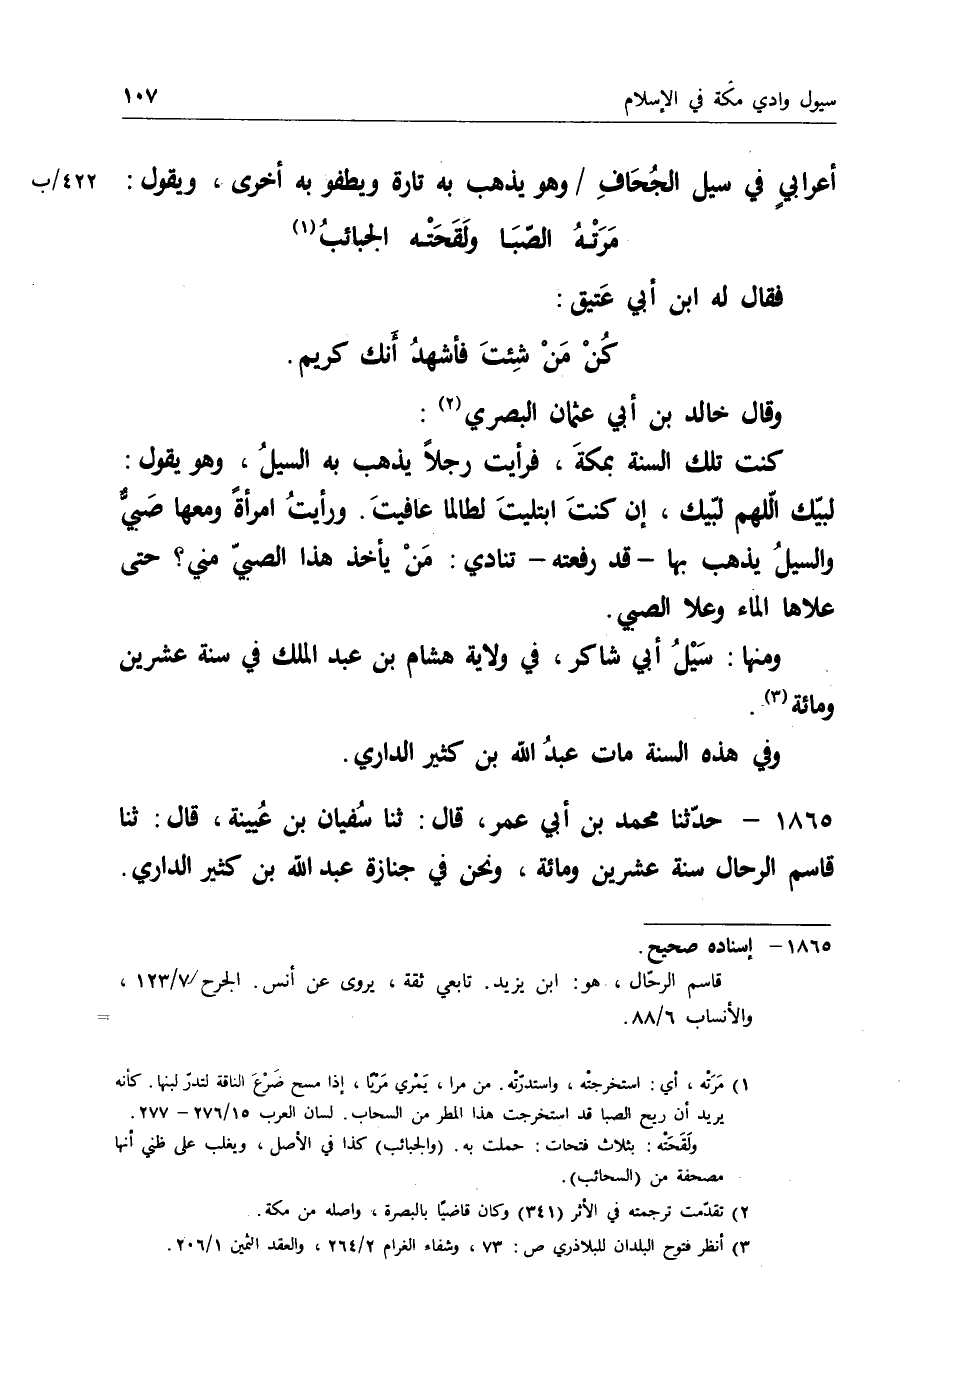 سيول وادي مكّة في الإسلام ١٠٧
أعرابيٍ في سيل الجُحَافِ / وهو يذهب به تارة ويطفو به أخرى ، ويقول : ٤٢٢/ب
مَرَتْـهُ الصَّبَـا ولَقَحَتْـه الجبائبُ(١)
فقال له ابن أبي عَتيق :
كُنْ مَنْ شِئتَ فأشهدُ أَنك كريم .
وقال خالد بن أبي عثمان البصري(٢) :
كنت تلك السنة بمكةَ ، فرأيت رجلاً يذهب به السيلُ ، وهو يقول :
لبيّك الّلهم لبّيك ، إن كنتَ ابتليتَ لطالما عافيتَ . ورأيتُ امرأةً ومعها صَبيٌّ
والسيلُ يذهب بها – قد رفعته – تنادي : مَنْ يأخذ هذا الصبيّ مني؟ حتى
علاها الماء وعلا الصبي .
ومنها : سَيْلُ أبي شاكر ، في ولاية هشام بن عبد الملك في سنة عشرين
ومائة(٣) .
وفي هذه السنة مات عبدُ الله بن كثير الداري .
١٨٦٥ – حدّثنا محمد بن أبي عمر ، قال : ثنا سُفيان بن عُيينة ، قال : ثنا
قاسم الرحال سنة عشرين ومائة ، ونحن في جنازة عبد الله بن كثير الداري .
١٨٦٥ – إسناده صحيح .
قاسم الرحّال ، هو : ابن يزيد . تابعي ثقة ، يروى عن أنس . الجرح ١٢٣/٧ ،
والأنساب ٨٨/٦ . =
١) مَرَتْه ، أي : استخرجتْه ، واستدرّته . من مرا ، يَمْري مَرْيًا ، إذا مسح ضَرْعَ الناقة لتدرّ لبنها . كأنه
يريد أن ريح الصبا قد استخرجت هذا المطر من السحاب . لسان العرب ٢٧٦/١٥ – ٢٧٧ .
ولَقَحَتْه : بثلاث فتحات : حملت به . (والجبائب) كذا في الأصل ، ويغلب على ظني أنها
مصحفة من (السحائب) .
٢) تقدّمت ترجمته في الأثر (٣٤١) وكان قاضيًا بالبصرة ، واصله من مكة .
٣) أنظر فتوح البلدان للبلاذري ص : ٧٣ ، وشفاء الغرام ٢٦٤/٢ ، والعقد الثمين ٢٠٦/١ .